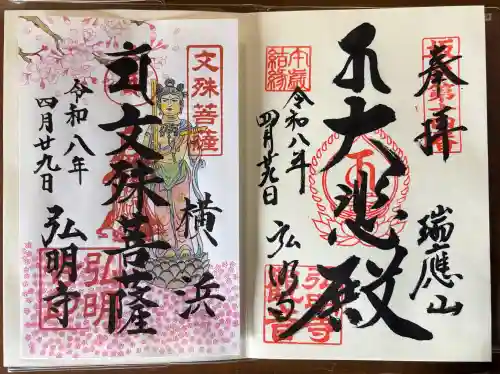 奉拝
瑞應山
大悲殿
令和八年
四月廿九日
弘明寺
午歳
結縁
文殊菩薩
文殊菩薩
令和八年
四月廿九日
横浜
弘明寺
弘明